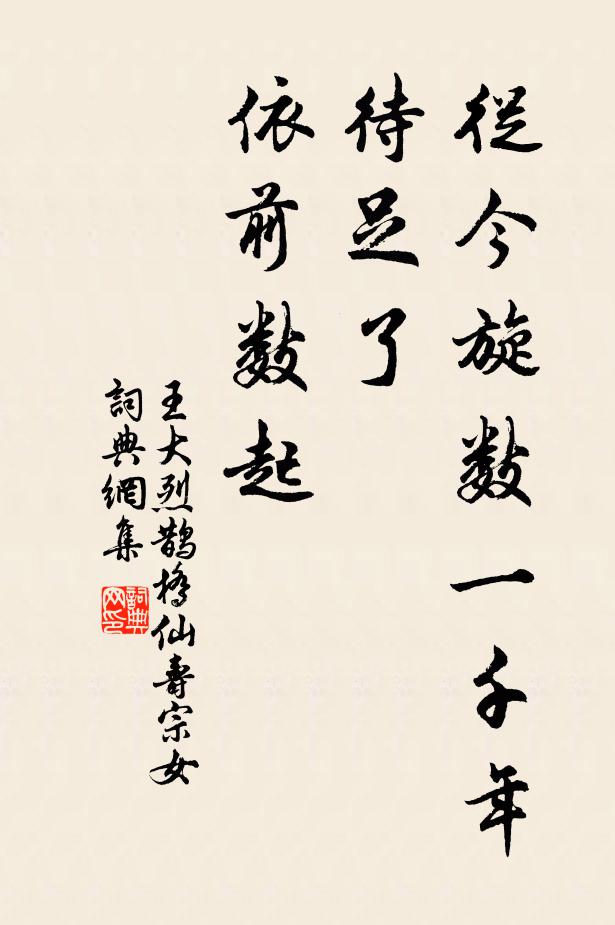 從今旋數一千年
待足了
依前數起
王大烈鵲橋仙壽宗女
詞典網集
詞典网印